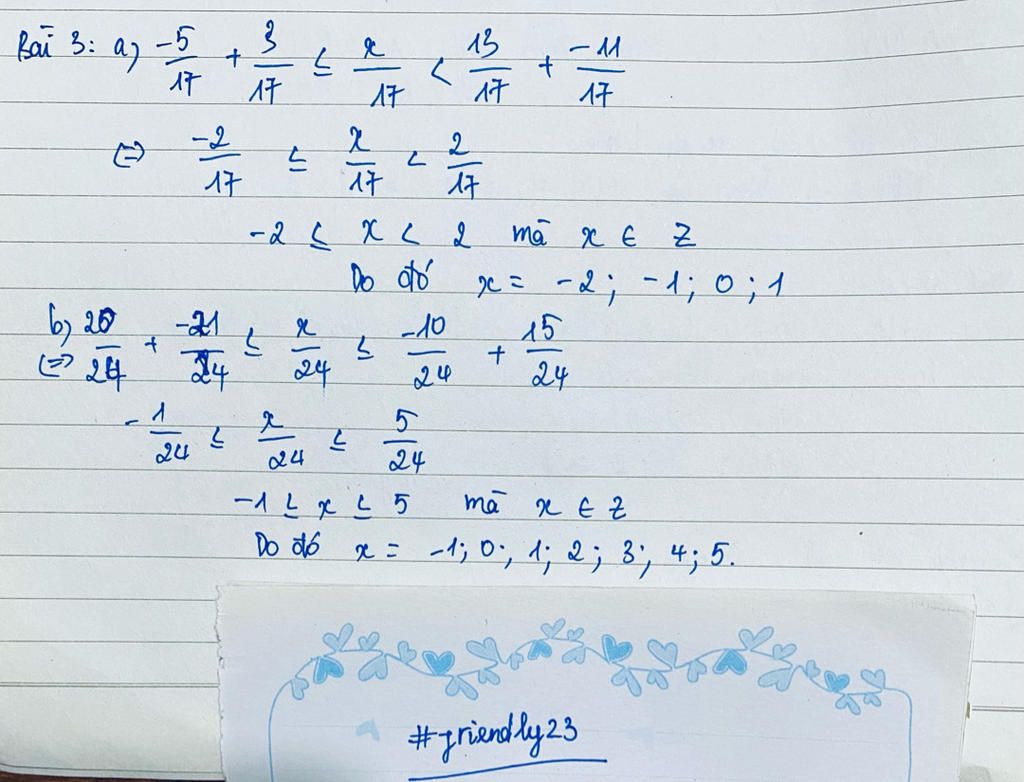 Bài 3: a) -5/17 + 3/17 ≤ x/17 < 13/17 + -11/17
⇔ -2/17 ≤ x/17 < 2/17
-2 ≤ x < 2 mà x ∈ Z
Do đó x = -2; -1; 0; 1
b) ⇔ 20/24 + -21/24 ≤ x/24 ≤ -10/24 + 15/24
-1/24 ≤ x/24 ≤ 5/24
-1 ≤ x ≤ 5 mà x ∈ Z
Do đó x = -1; 0; 1; 2; 3; 4; 5.
#friendly23